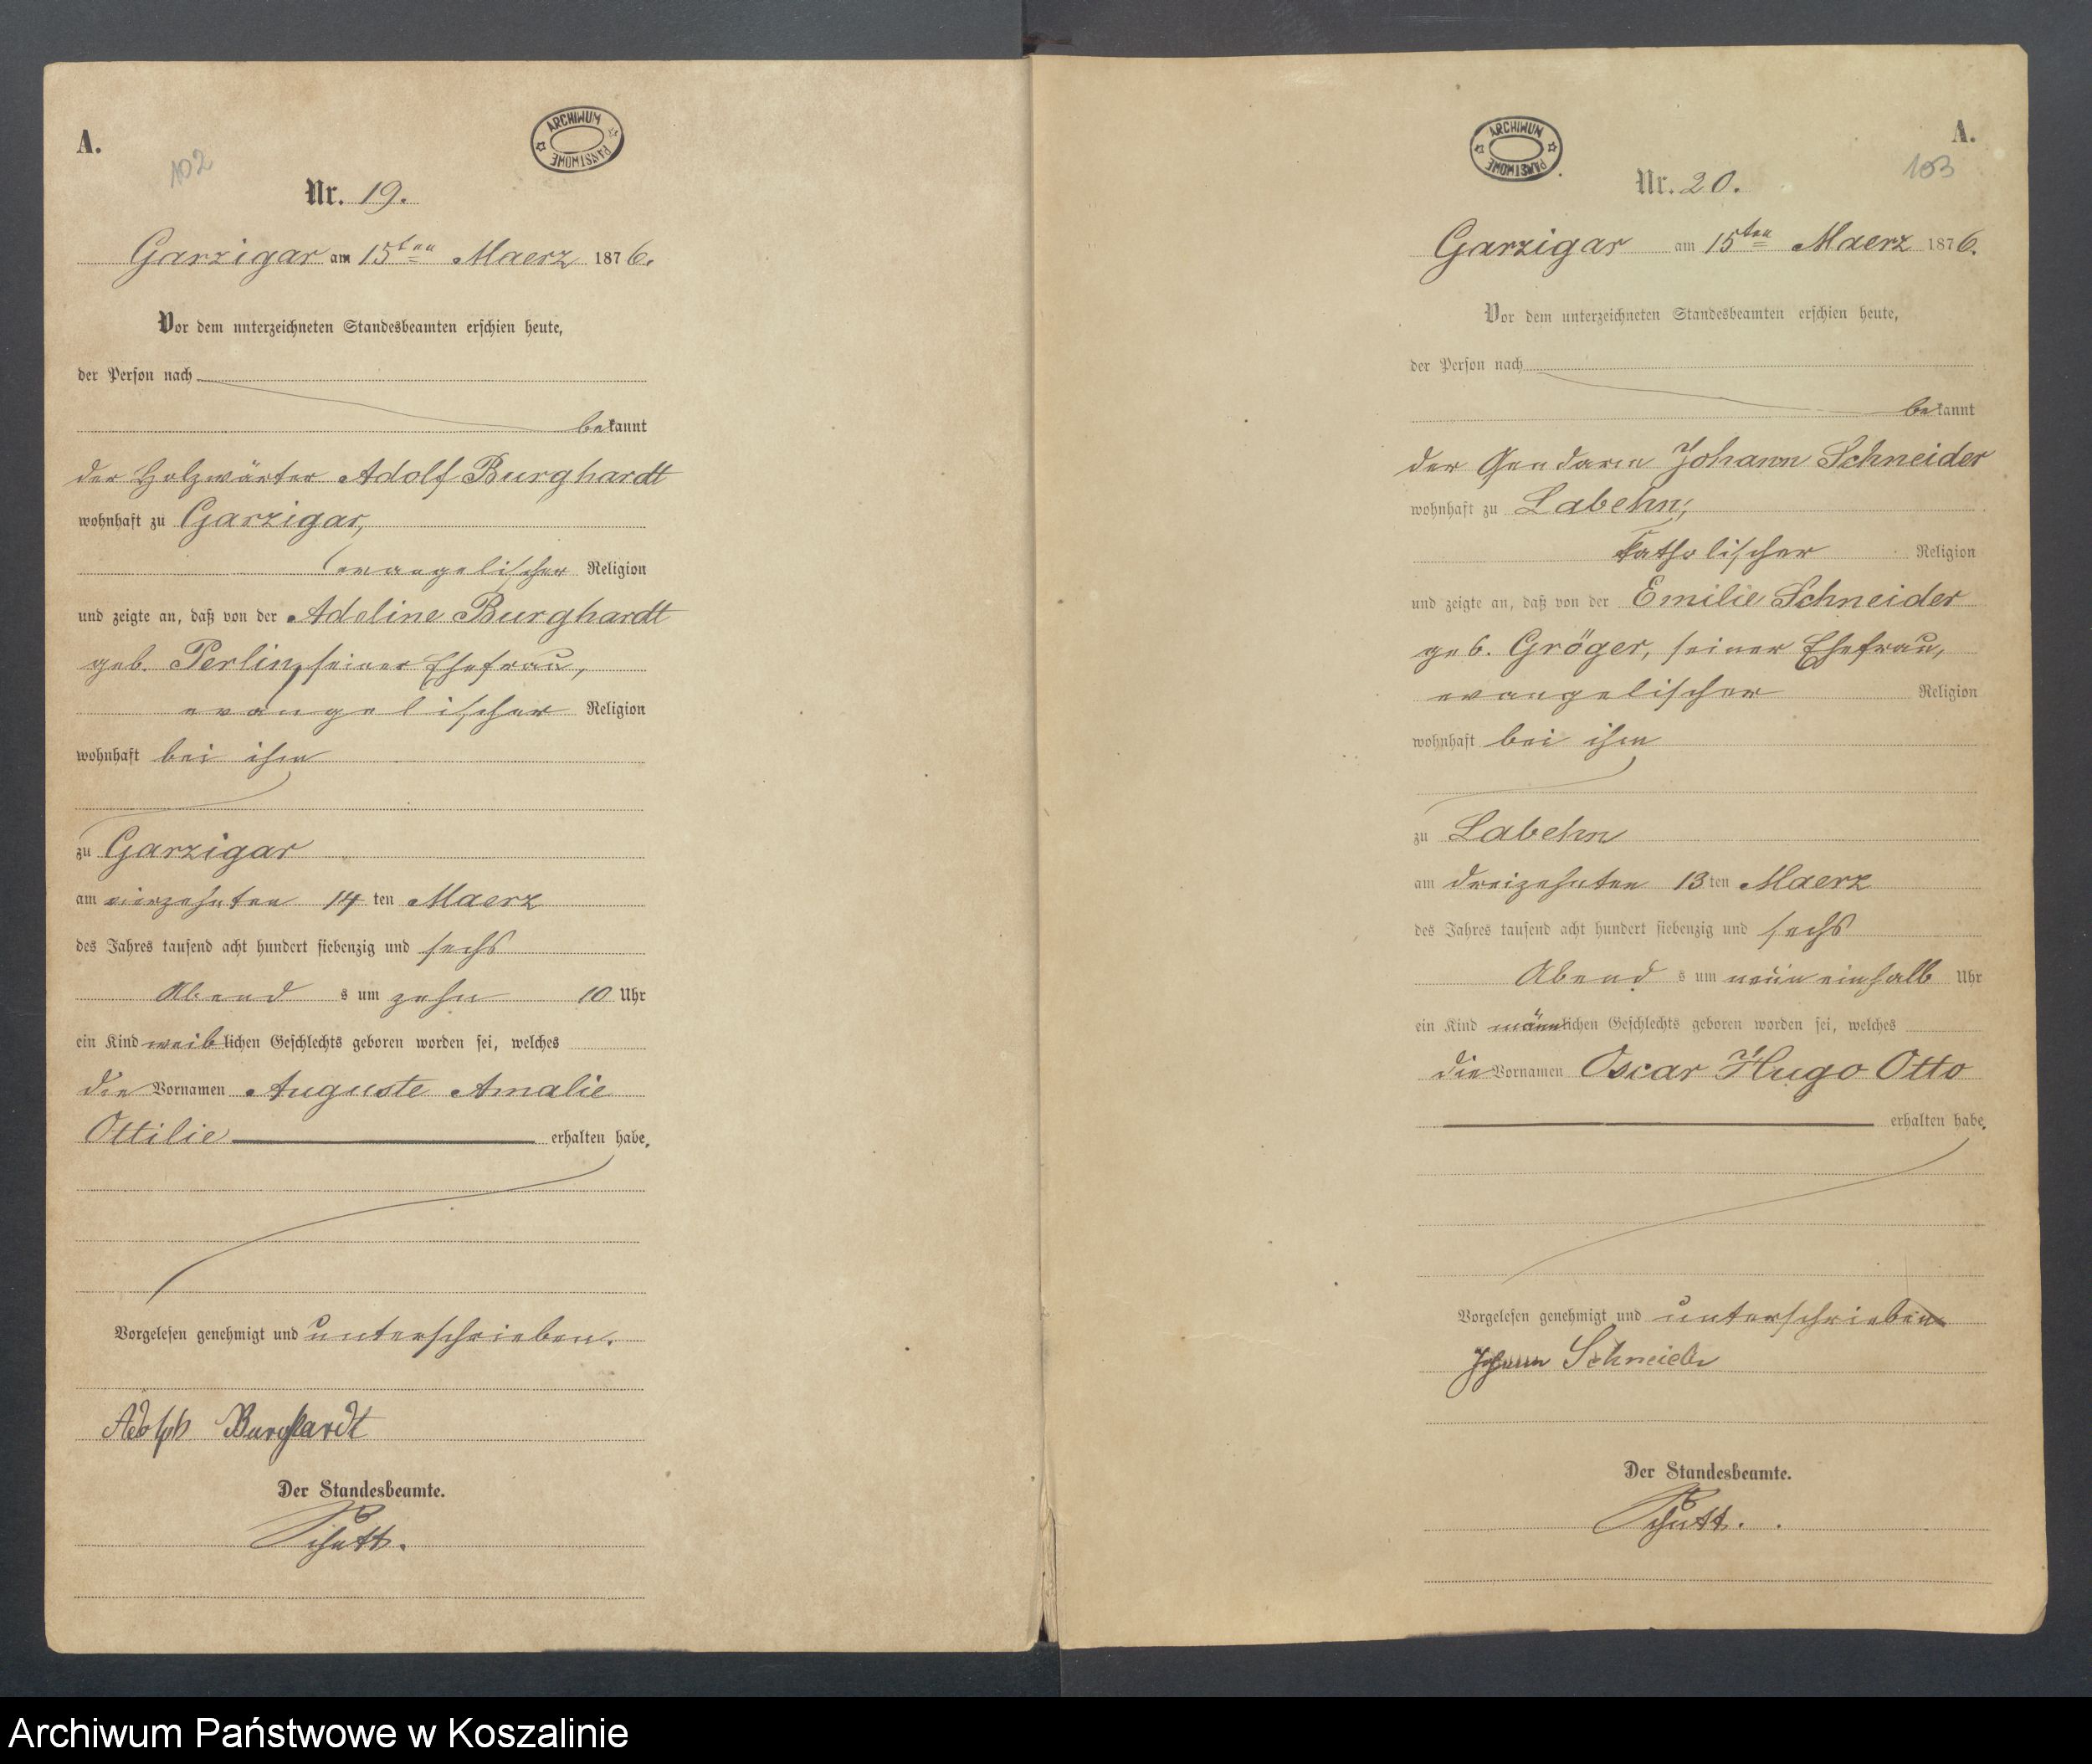 A.
102
ARCHIWUM PAŃSTWOWE
Nr. 19.
Garzigar am 15ten Maerz 1876.
Vor dem unterzeichneten Standesbeamten erschien heute,
der Person nach
bekannt
der Holzwärter Adolf Burghardt
wohnhaft zu Garzigar,
evangelischer Religion
und zeigte an, daß von der Adeline Burghardt
geb. Perlin, seiner Ehefrau,
evangelischer Religion
wohnhaft bei ihm
zu Garzigar
am vierzehnten 14 ten Maerz
des Jahres tausend acht hundert siebenzig und sechs
Abend s um zehn 10 Uhr
ein Kind weiblichen Geschlechts geboren worden sei, welches
die Vornamen Auguste Amalie
Ottilie erhalten habe.
Vorgelesen genehmigt und unterschrieben.
Adolph Burghardt
Der Standesbeamte.
A.
103
ARCHIWUM PAŃSTWOWE
Nr. 20.
Garzigar am 15ten Maerz 1876.
Vor dem unterzeichneten Standesbeamten erschien heute,
der Person nach
bekannt
der Gendarm Johann Schneider
wohnhaft zu Labehn,
katholischer Religion
und zeigte an, daß von der Emilie Schneider
geb. Gröger, seiner Ehefrau,
evangelischer Religion
wohnhaft bei ihm
zu Labehn
am dreizehnten 13 ten Maerz
des Jahres tausend acht hundert siebenzig und sechs
Abend s um neuneinhalb Uhr
ein Kind männlichen Geschlechts geboren worden sei, welches
die Vornamen Oscar Hugo Otto
erhalten habe.
Vorgelesen genehmigt und unterschrieben
Johann Schneider
Der Standesbeamte.
Archiwum Państwowe w Koszalinie